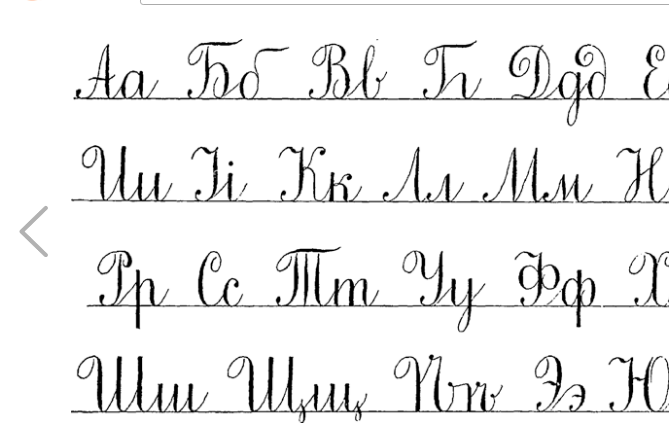 Аа Бб Вв Гг Ддд Е
Ии Іі Кк Лл Мм Н
Рр Сс Тт Уу Фф Х
Шш Щщ Ѣѣ Ээ Ю